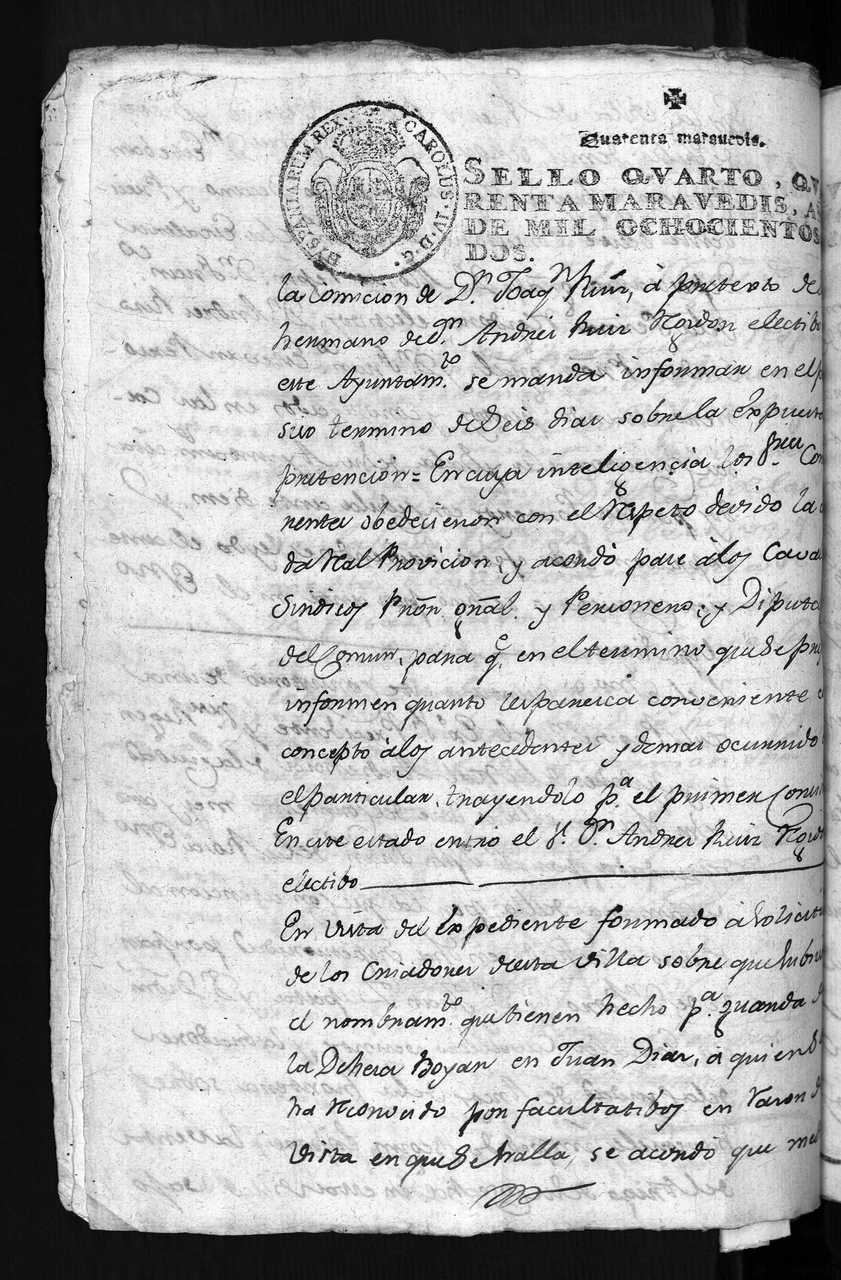 Quarenta maravedis.
SELLO QVARTO, QV
RENTA MARAVEDIS, A
DE MIL OCHOCIENTOS
DOS.
CAROLUS·IV·D·G· HISPANIARUM REX
la Comicion de Dn Joaqn Ruiz, à pretexto de
hermano de dn Andres Ruiz electibo
este Ayuntamto se manda informar en el
suo termino de seis dias sobre la expuesta
pretención = En cuya inteligencia los Sres Con
renter obedecieron con el Respeto devido la
da Real Provicion, y acordó pase à los Cava
Sindicos Prôn. gñal. y Personero, y Diputa
del Comun, para q.e en el termino que se pre
informen quanto les paresca conveniente
concepto à los antecedentes y demas ocurrido
el particular, trayendolo pa el primer Conv
En este estado entro el Sr. Dn Andres Ruiz
electibo
En vista del expediente formado à solicit
de los Criadores desta villa sobre que
el nombramto que tienen hecho pa guarda
la Dehesa Boyar en Juan Diaz, à quien
ha Reconocido por facultatibos en raron
vista en que se halla, se acordó que